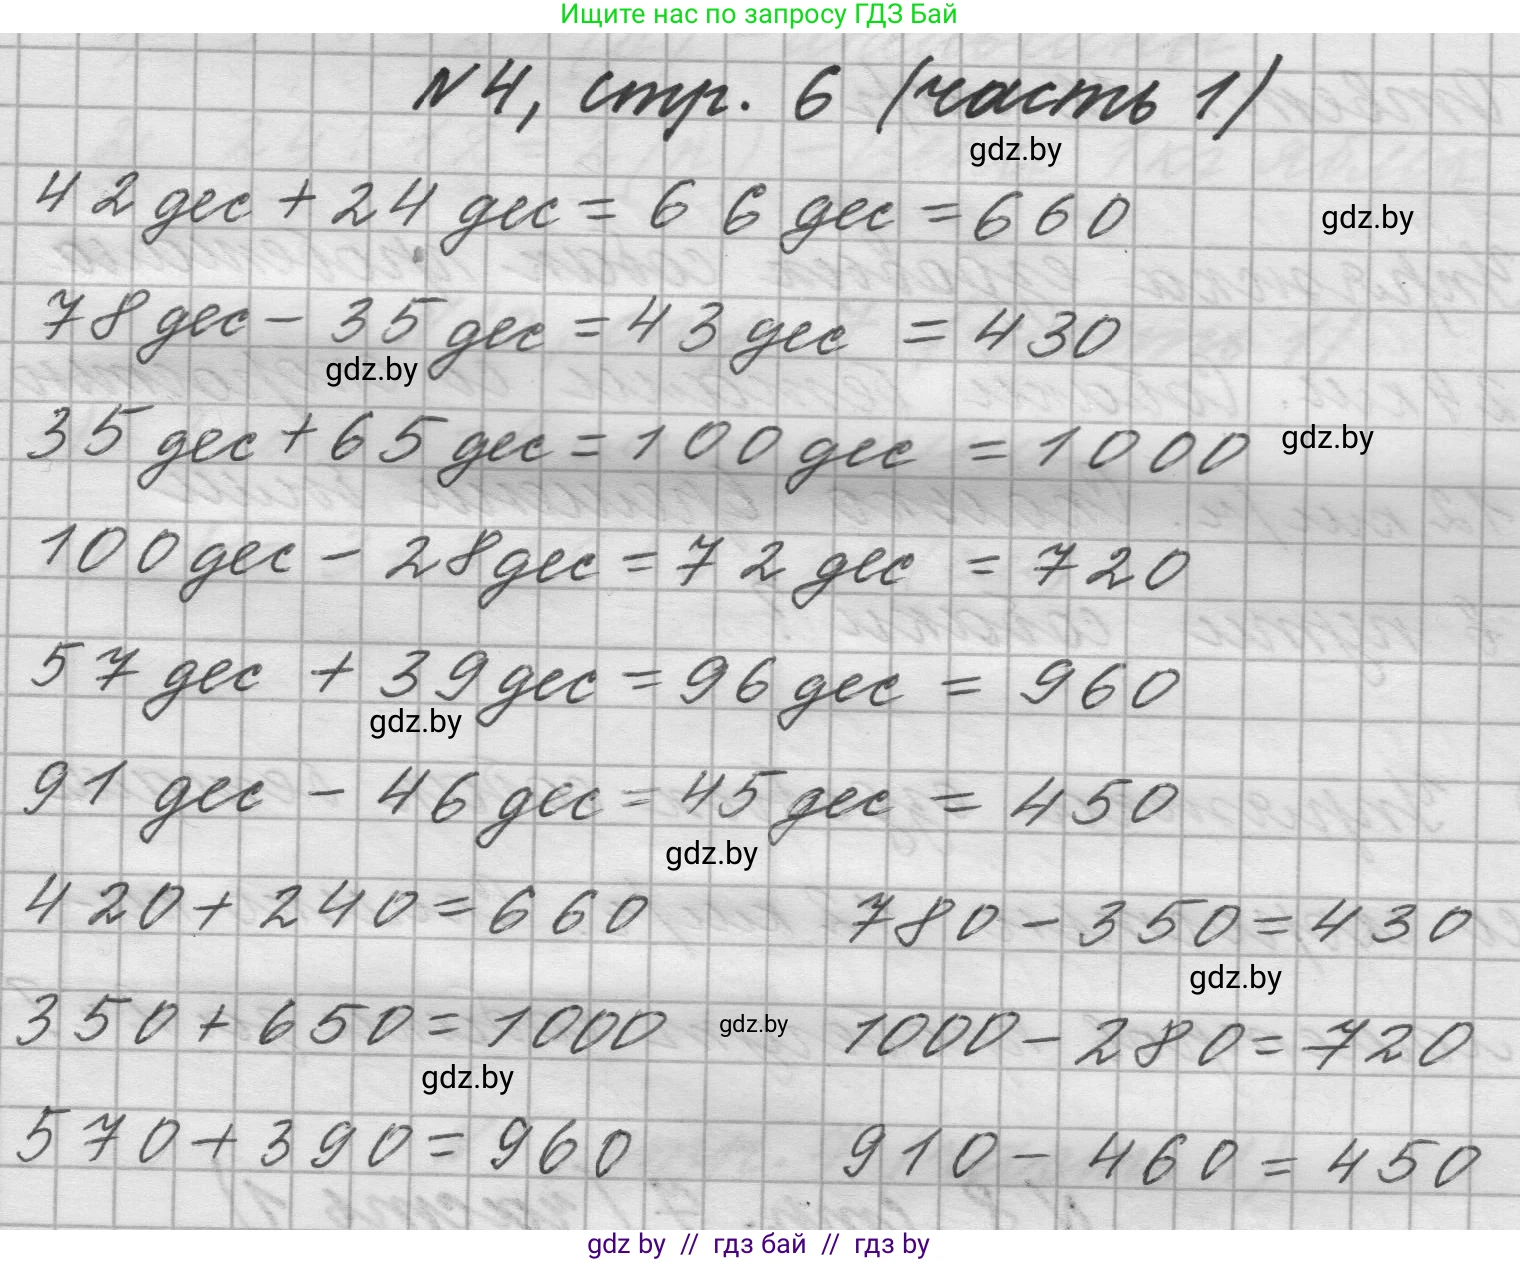 Ищите нас по запросу ГДЗ Бай
N4, стр. 6 (часть 1)
gdz.by
42 дес + 24 дес = 66 дес = 660
gdz.by
78 дес - 35 дес = 43 дес = 430
gdz.by
35 дес + 65 дес = 100 дес = 1000
gdz.by
100 дес - 28 дес = 72 дес = 720
57 дес + 39 дес = 96 дес = 960
gdz.by
91 дес - 46 дес = 45 дес = 450
gdz.by
420 + 240 = 660 780 - 350 = 430
gdz.by
350 + 650 = 1000 gdz.by 1000 - 280 = 720
gdz.by
570 + 390 = 960 910 - 460 = 450
gdz by // гдз бай // гдз by